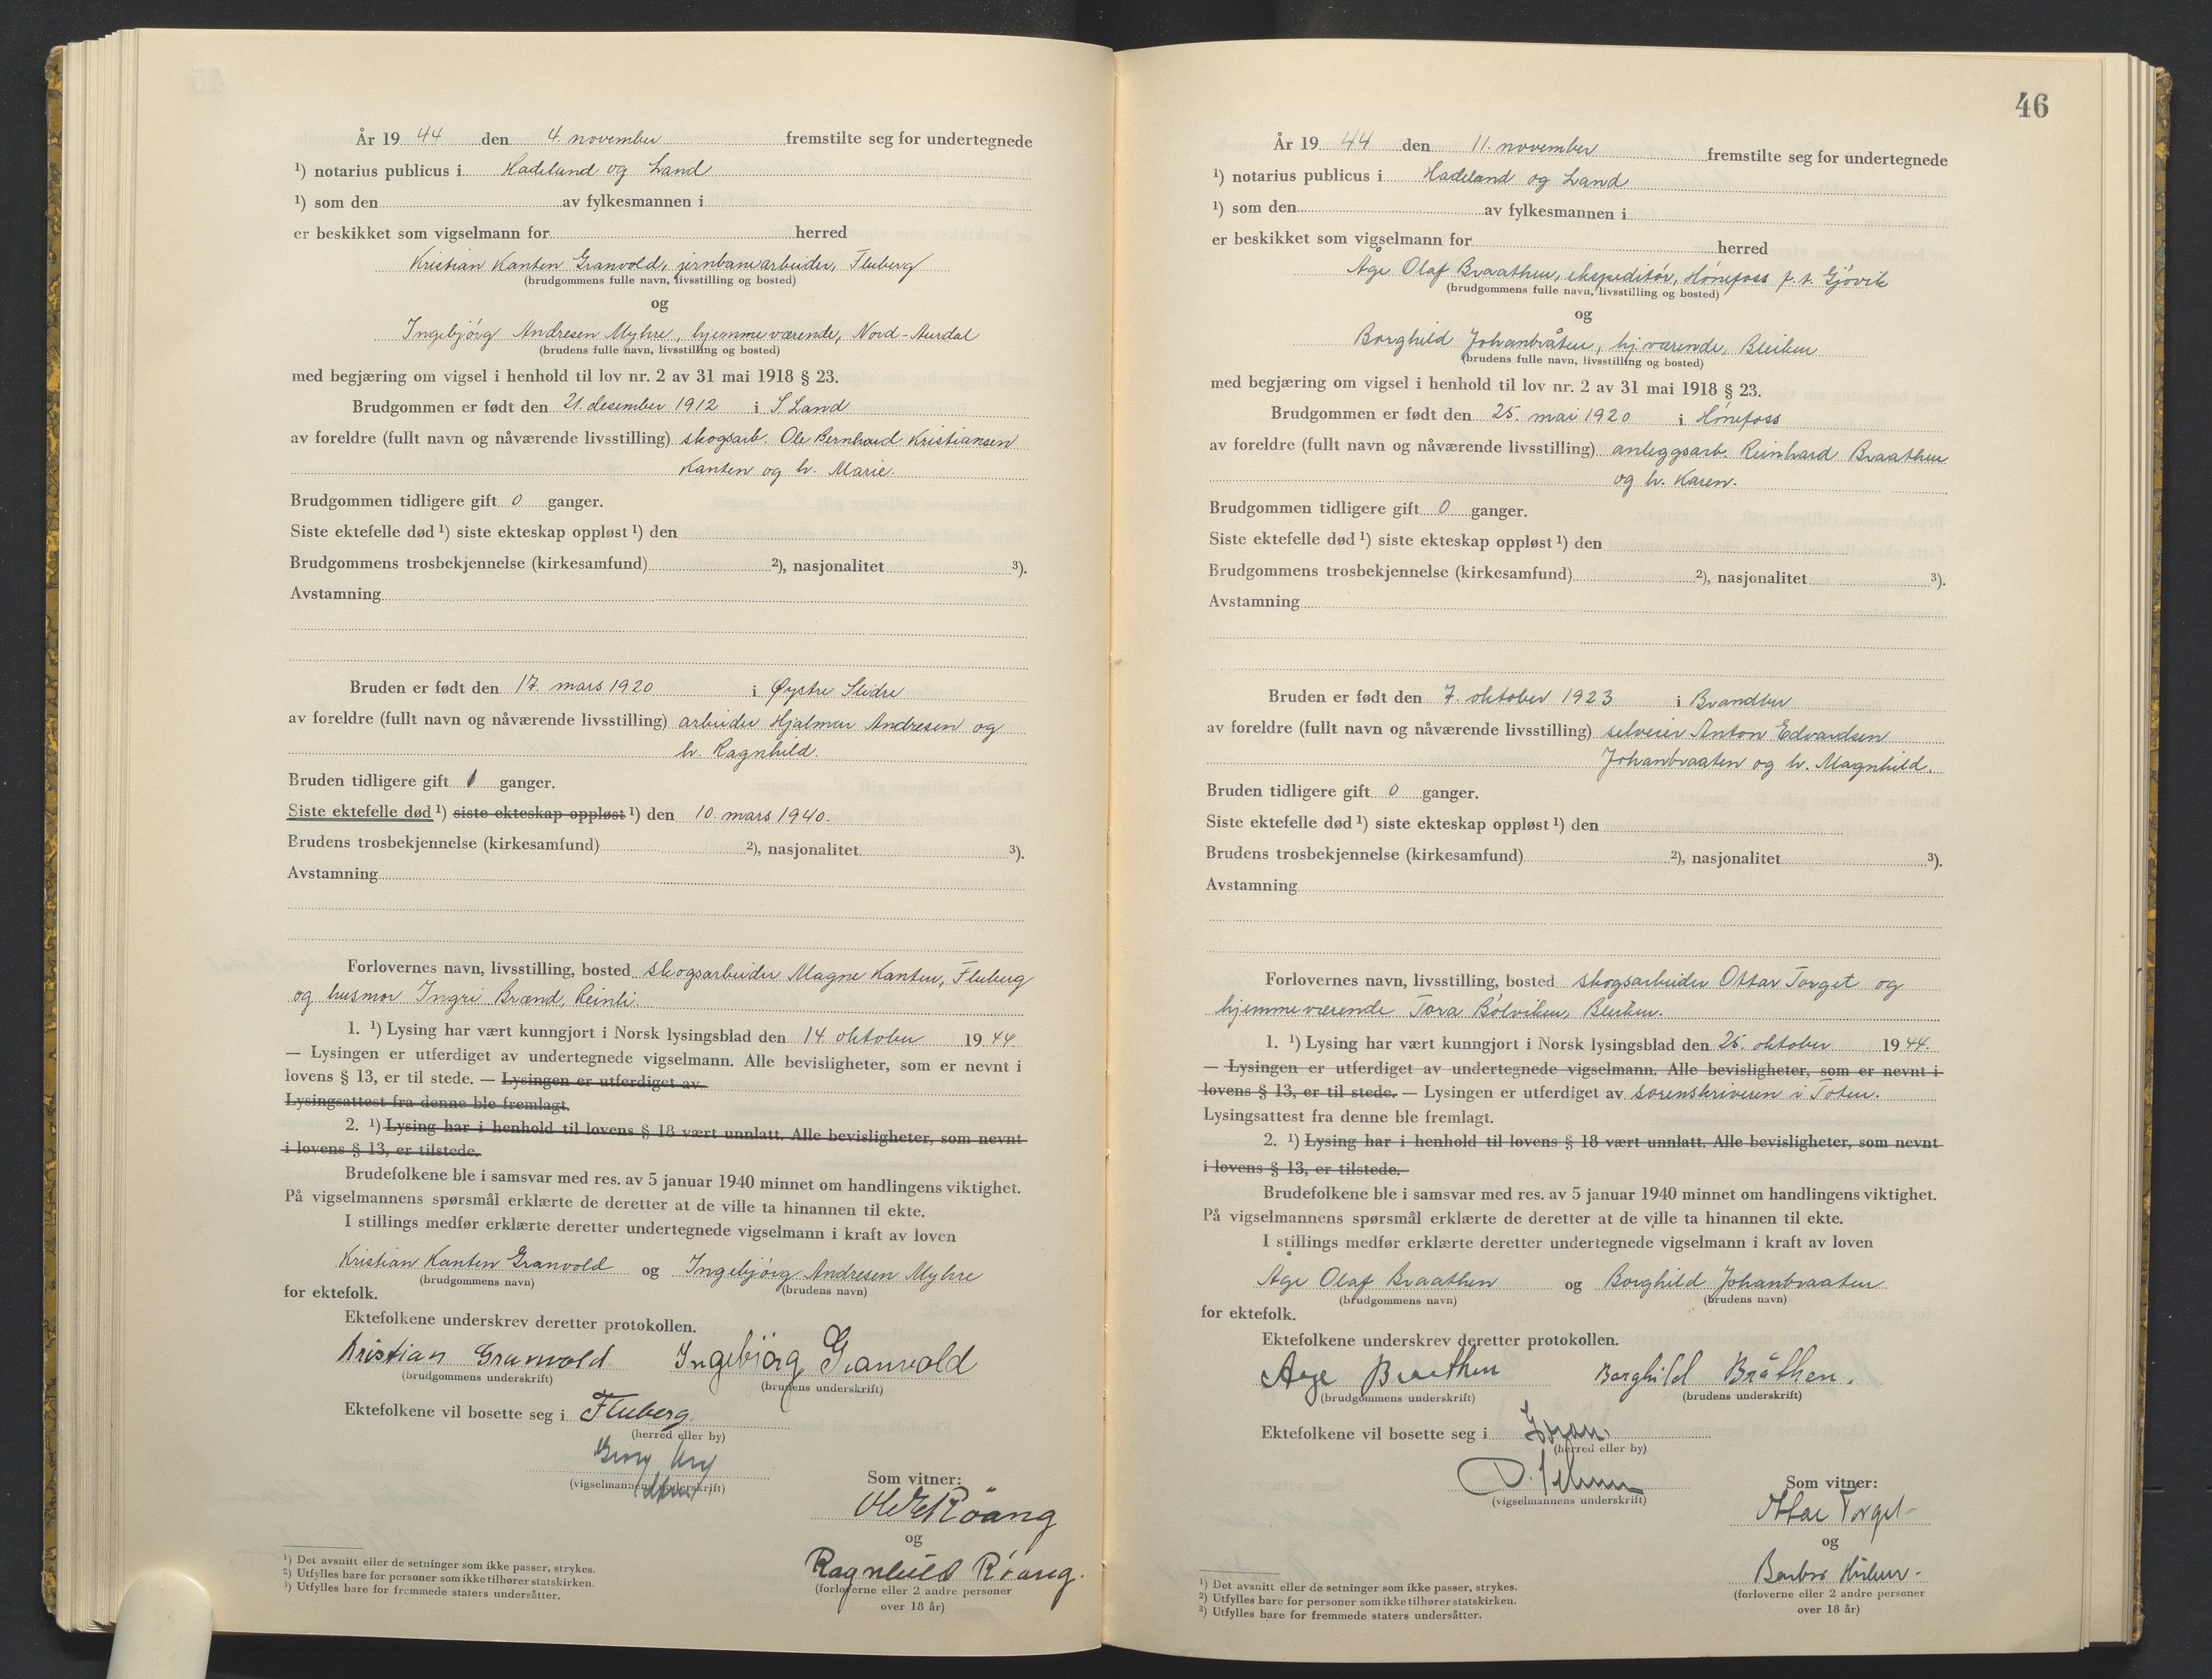 År 19 44 den 4. november fremstilte seg for undertegnede
¹) notarius publicus i Hadeland og Land
¹) som den av fylkesmannen i
er beskikket som vigselmann for herred
Kristian Kanten Granvold, jernbanearbeider, Fluberg
(brudgommens fulle navn, livsstilling og bosted)
og
Ingebjörg Andresen Myhre, hjemmeværende, Nord-Aurdal
(brudens fulle navn, livsstilling og bosted)
med begjæring om vigsel i henhold til lov nr. 2 av 31 mai 1918 § 23.
Brudgommen er født den 21. desember 1912 i S. Land
av foreldre (fullt navn og nåværende livsstilling) skogsarb. Ole Bernhard Kristiansen
Kanten og h. Marie.
Brudgommen tidligere gift 0 ganger.
Siste ektefelle død ¹) siste ekteskap oppløst ¹) den
Brudgommens trosbekjennelse (kirkesamfund) ²), nasjonalitet ³).
Avstamning
Bruden er født den 17. mars 1920 i Øystre Slidre
av foreldre (fullt navn og nåværende livsstilling) arbeider Hjalmar Andresen og
h. Ragnhild.
Bruden tidligere gift 1 ganger.
Siste ektefelle død ¹) siste ekteskap oppløst ¹) den 10. mars 1940.
Brudens trosbekjennelse (kirkesamfund) ²), nasjonalitet ³).
Avstamning
Forlovernes navn, livsstilling, bosted skogsarbeider Magne Kanten, Fluberg
og husmor Ingri Brænd, Reinli.
1. ¹) Lysing har vært kunngjort i Norsk lysingsblad den 14 oktober 19 44
— Lysingen er utferdiget av undertegnede vigselmann. Alle bevisligheter, som er nevnt i
lovens § 13, er til stede. — Lysingen er utferdiget av
Lysingsattest fra denne ble fremlagt.
2. ¹) Lysing har i henhold til lovens § 18 vært unnlatt. Alle bevisligheter, som nevnt
i lovens § 13, er tilstede.
Brudefolkene ble i samsvar med res. av 5 januar 1940 minnet om handlingens viktighet.
På vigselmannens spørsmål erklærte de deretter at de ville ta hinannen til ekte.
I stillings medfør erklærte deretter undertegnede vigselmann i kraft av loven
Kristian Kanten Granvold og Ingebjörg Andresen Myhre
(brudgommens navn) (brudens navn)
for ektefolk.
Ektefolkene underskrev deretter protokollen.
Kristian Granvold Ingebjörg Granvold
(brudgommens underskrift) (brudens underskrift)
Ektefolkene vil bosette seg i Fluberg.
(herred eller by)
Georg
(vigselmannens underskrift)
Som vitner:
Röang
og
Ragnhild Röang.
(forloverne eller 2 andre personer
over 18 år)
¹) Det avsnitt eller de setninger som ikke passer, strykes.
²) Utfylles bare for personer som ikke tilhører statskirken.
³) Utfylles bare for fremmede staters undersåtter.
46
År 19 44 den 11. november fremstilte seg for undertegnede
¹) notarius publicus i Hadeland og Land
¹) som den av fylkesmannen i
er beskikket som vigselmann for herred
Åge Olaf Braathen, ekspeditör, Hönefoss p. t. Gjövik
(brudgommens fulle navn, livsstilling og bosted)
og
Borghild Johanbråten, hj.værende, Bleiken
(brudens fulle navn, livsstilling og bosted)
med begjæring om vigsel i henhold til lov nr. 2 av 31 mai 1918 § 23.
Brudgommen er født den 25. mai 1920 i Hönefoss
av foreldre (fullt navn og nåværende livsstilling) anleggsarb. Reinhard Braathen
og h. Karen.
Brudgommen tidligere gift 0 ganger.
Siste ektefelle død ¹) siste ekteskap oppløst ¹) den
Brudgommens trosbekjennelse (kirkesamfund) ²), nasjonalitet ³).
Avstamning
Bruden er født den 7. oktober 1923 i Brandbu
av foreldre (fullt navn og nåværende livsstilling) selveier Anton Edvardsen
Johanbraaten og h. Magnhild.
Bruden tidligere gift 0 ganger.
Siste ektefelle død ¹) siste ekteskap oppløst ¹) den
Brudens trosbekjennelse (kirkesamfund) ²), nasjonalitet ³).
Avstamning
Forlovernes navn, livsstilling, bosted skogsarbeider Ottar Torget og
hjemmeværende Tora Bölviken, Bleiken.
1. ¹) Lysing har vært kunngjort i Norsk lysingsblad den 25. oktober 19 44.
— Lysingen er utferdiget av undertegnede vigselmann. Alle bevisligheter, som er nevnt i
lovens § 13, er til stede. — Lysingen er utferdiget av sorenskriveren i Toten.
Lysingsattest fra denne ble fremlagt.
2. ¹) Lysing har i henhold til lovens § 18 vært unnlatt. Alle bevisligheter, som nevnt
i lovens § 13, er tilstede.
Brudefolkene ble i samsvar med res. av 5 januar 1940 minnet om handlingens viktighet.
På vigselmannens spørsmål erklærte de deretter at de ville ta hinannen til ekte.
I stillings medfør erklærte deretter undertegnede vigselmann i kraft av loven
Åge Olaf Braathen og Borghild Johanbraaten
(brudgommens navn) (brudens navn)
for ektefolk.
Ektefolkene underskrev deretter protokollen.
Aage Braathen Borghild Bråthen.
(brudgommens underskrift) (brudens underskrift)
Ektefolkene vil bosette seg i Gran.
(herred eller by)
(vigselmannens underskrift)
Som vitner:
Ottar Torget
og
(forloverne eller 2 andre personer
over 18 år)
¹) Det avsnitt eller de setninger som ikke passer, strykes.
²) Utfylles bare for personer som ikke tilhører statskirken.
³) Utfylles bare for fremmede staters undersåtter.